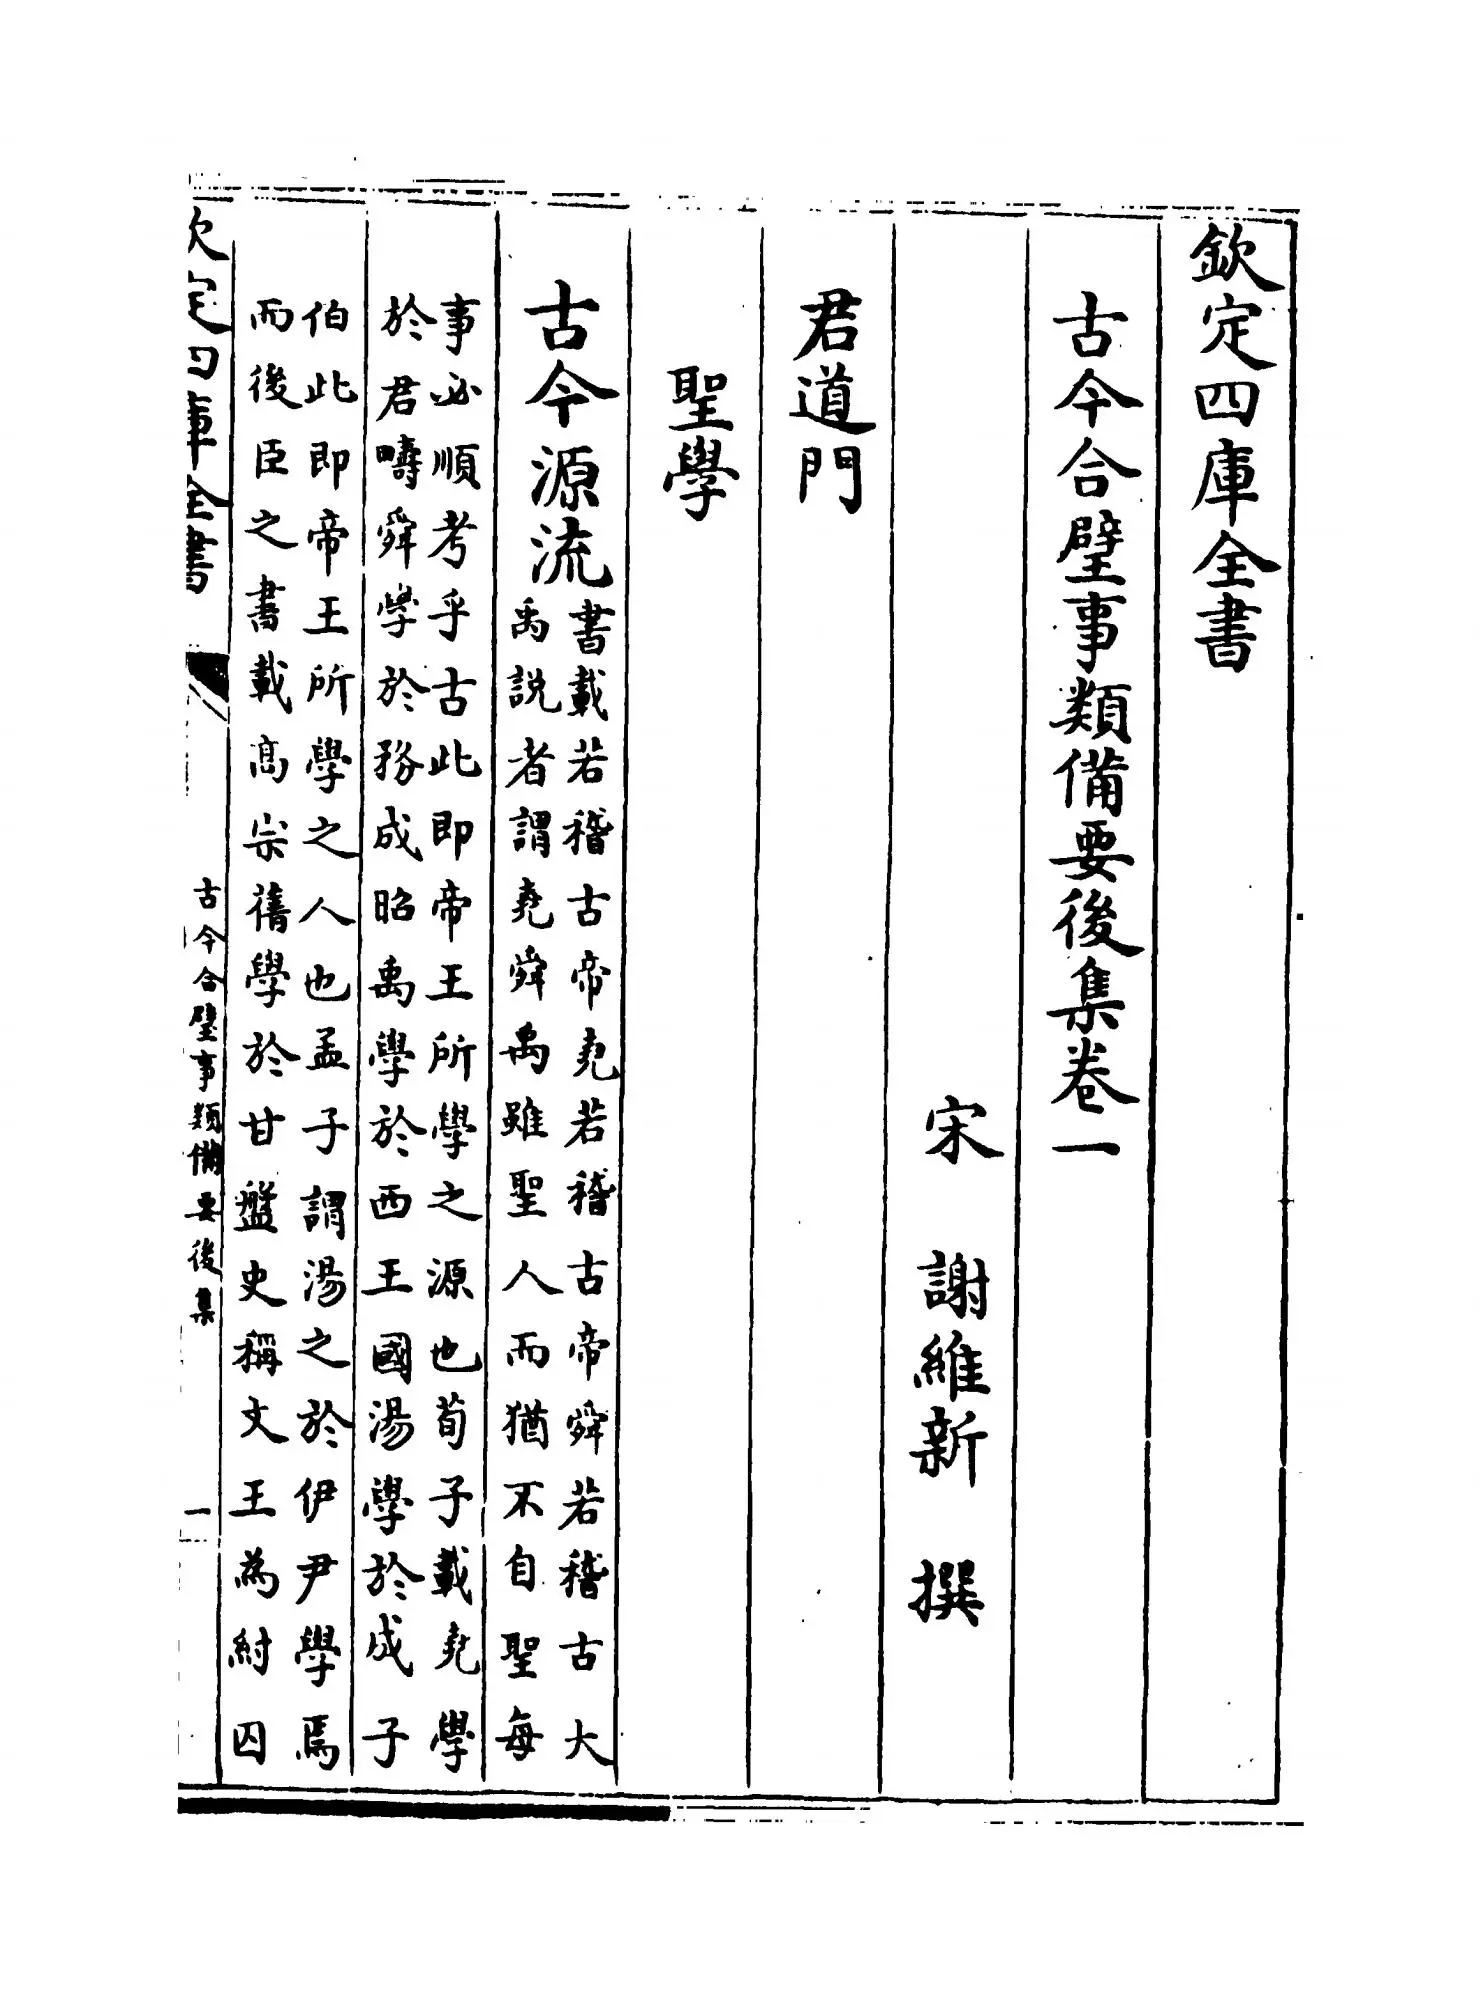 欽定四庫全書
古今合璧事類備要後集卷一
宋 謝維新 撰
君道門
聖學
古今源流
書載若稽古帝堯若稽古帝舜若稽古大
禹說者謂堯舜禹雖聖人而猶不自聖每
事必順考乎古此即帝王所學之源也荀子載堯學
於君疇舜學於務成昭禹學於西王國湯學於成子
伯此即帝王所學之人也孟子謂湯之於伊尹學焉
而後臣之書載高宗舊學於甘盤史稱文王為紂囚
欽定四庫全書
古今合璧事類備要後集
一